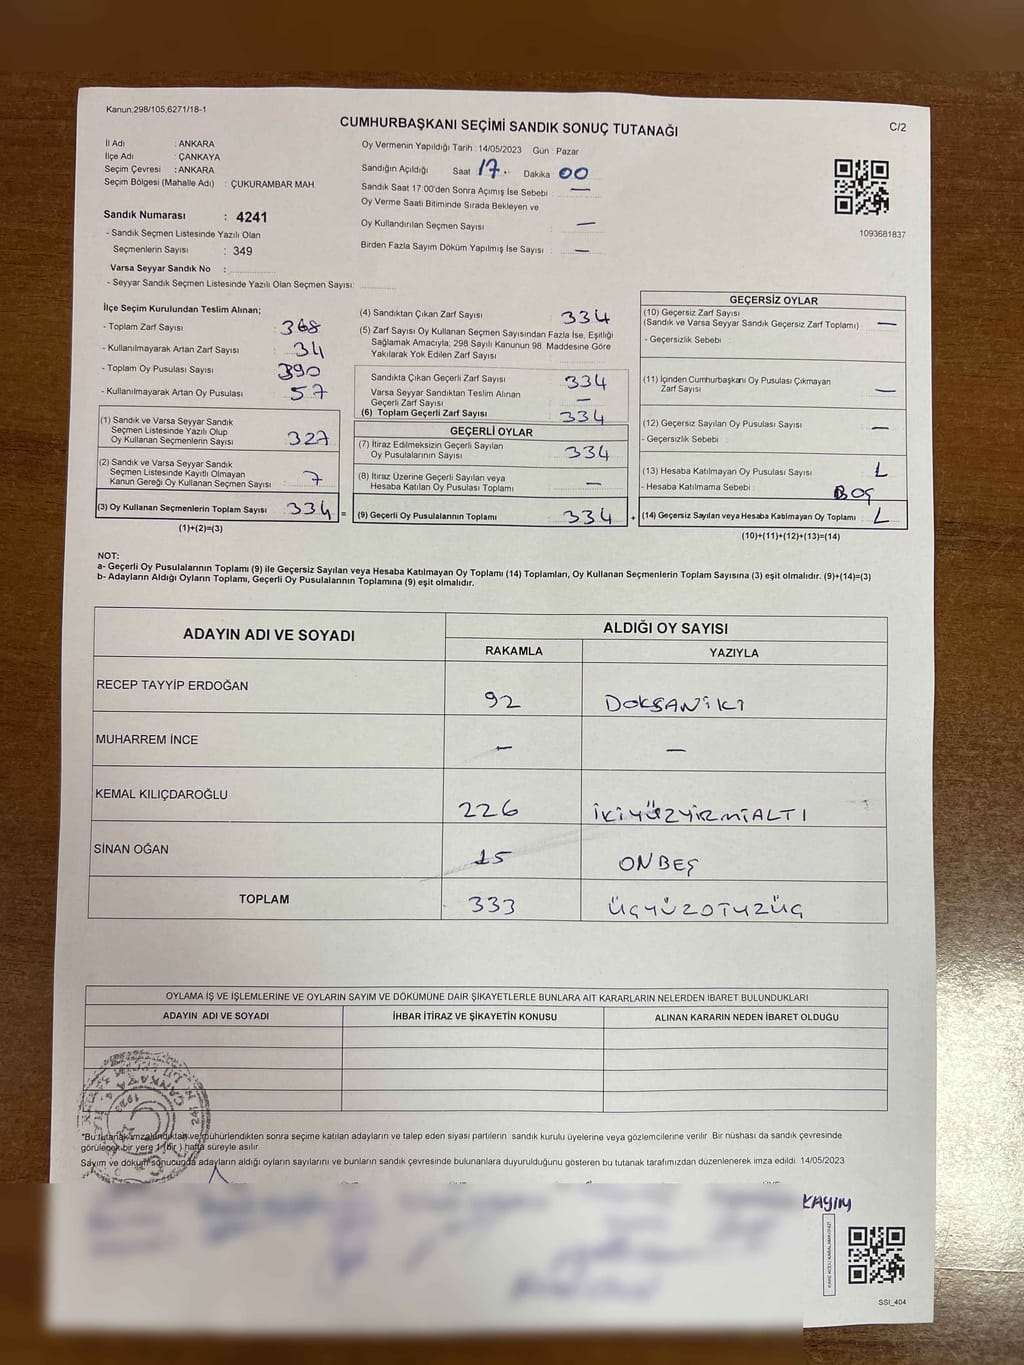 Kanun;298/105,6271/18-1
CUMHURBAŞKANI SEÇİMİ SANDIK SONUÇ TUTANAĞI
C/2
İl Adı : ANKARA
İlçe Adı : ÇANKAYA
Seçim Çevresi : ANKARA
Seçim Bölgesi (Mahalle Adı) : ÇUKURAMBAR MAH
Sandık Numarası : 4241
- Sandık Seçmen Listesinde Yazılı Olan
Seçmenlerin Sayısı : 349
Varsa Seyyar Sandık No :
- Seyyar Sandık Seçmen Listesinde Yazılı Olan Seçmen Sayısı:
Oy Vermenin Yapıldığı Tarih : 14/05/2023 Gün : Pazar
Sandığın Açıldığı Saat 17.. Dakika 00
Sandık Saat 17:00'den Sonra Açımış İse Sebebi : —
Oy Verme Saati Bitiminde Sırada Bekleyen ve
Oy Kullandırılan Seçmen Sayısı : —
Birden Fazla Sayım Döküm Yapılmış İse Sayısı : —
1093681837
İlçe Seçim Kurulundan Teslim Alınan;
- Toplam Zarf Sayısı : 368
- Kullanılmayarak Artan Zarf Sayısı : 34
- Toplam Oy Pusulası Sayısı : 390
- Kullanılmayarak Artan Oy Pusulası : 57
(1) Sandık ve Varsa Seyyar Sandık
Seçmen Listesinde Yazılı Olup
Oy Kullanan Seçmenlerin Sayısı : 327
(2) Sandık ve Varsa Seyyar Sandık
Seçmen Listesinde Kayıtlı Olmayan
Kanun Gereği Oy Kullanan Seçmen Sayısı : 7
(3) Oy Kullanan Seçmenlerin Toplam Sayısı : 334 =
(1)+(2)=(3)
(4) Sandıktan Çıkan Zarf Sayısı : 334
(5) Zarf Sayısı Oy Kullanan Seçmen Sayısından Fazla İse, Eşitliği
Sağlamak Amacıyla; 298 Sayılı Kanunun 98. Maddesine Göre
Yakılarak Yok Edilen Zarf Sayısı :
Sandıkta Çıkan Geçerli Zarf Sayısı : 334
Varsa Seyyar Sandıktan Teslim Alınan
Geçerli Zarf Sayısı : —
(6) Toplam Geçerli Zarf Sayısı : 334
GEÇERLİ OYLAR
(7) İtiraz Edilmeksizin Geçerli Sayılan
Oy Pusulalarının Sayısı : 334
(8) İtiraz Üzerine Geçerli Sayılan veya
Hesaba Katılan Oy Pusulası Toplamı : —
(9) Geçerli Oy Pusulalarının Toplamı : 334 +
GEÇERSİZ OYLAR
(10) Geçersiz Zarf Sayısı
(Sandık ve Varsa Seyyar Sandık Geçersiz Zarf Toplamı) : —
- Geçersizlik Sebebi :
(11) İçinden Cumhurbaşkanı Oy Pusulası Çıkmayan
Zarf Sayısı : —
(12) Geçersiz Sayılan Oy Pusulası Sayısı : —
- Geçersizlik Sebebi :
(13) Hesaba Katılmayan Oy Pusulası Sayısı : 1
- Hesaba Katılmama Sebebi : BOŞ
(14) Geçersiz Sayılan veya Hesaba Katılmayan Oy Toplamı : 1
(10)+(11)+(12)+(13)=(14)
NOT:
a- Geçerli Oy Pusulalarının Toplamı (9) ile Geçersiz Sayılan veya Hesaba Katılmayan Oy Toplamı (14) Toplamları, Oy Kullanan Seçmenlerin Toplam Sayısına (3) eşit olmalıdır. (9)+(14)=(3)
b- Adayların Aldığı Oyların Toplamı, Geçerli Oy Pusulalarının Toplamına (9) eşit olmalıdır.
ADAYIN ADI VE SOYADI
ALDIĞI OY SAYISI
RAKAMLA YAZIYLA
RECEP TAYYİP ERDOĞAN 92 DOKSANİKİ
MUHARREM İNCE — —
KEMAL KILIÇDAROĞLU 226 İKİYÜZYİRMİALTI
SİNAN OĞAN 15 ONBEŞ
TOPLAM 333 ÜÇYÜZOTUZÜÇ
OYLAMA İŞ VE İŞLEMLERİNE VE OYLARIN SAYIM VE DÖKÜMÜNE DAİR ŞİKAYETLERLE BUNLARA AİT KARARLARIN NELERDEN İBARET BULUNDUKLARI
ADAYIN ADI VE SOYADI İHBAR İTİRAZ VE ŞİKAYETİN KONUSU ALINAN KARARIN NEDEN İBARET OLDUĞU
*Bu tutanak imzalandıktan ve mühürlendikten sonra seçime katılan adayların ve talep eden siyasi partilerin sandık kurulu üyelerine veya gözlemcilerine verilir Bir nüshası da sandık çevresinde
görülecek bir yere 1 (bir ) hafta süreyle asılır.
Sayım ve döküm sonucunda adayların aldığı oyların sayılarını ve bunların sandık çevresinde bulunanlara duyurulduğunu gösteren bu tutanak tarafımızdan düzenlenerek imza edildi 14/05/2023
KAYIM
SSI_404